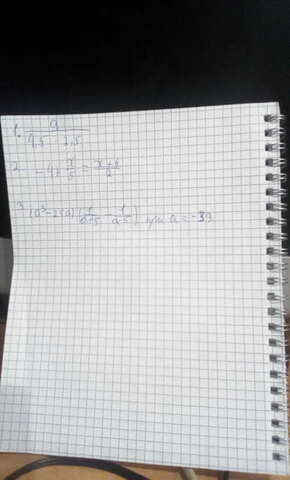 1. 9 / (4,5 · 2,5)
2. -4 + x/5 = (x+4)/2
3. (a³-25a)(1/(a+5) - 1/(a-5)) при a = -39